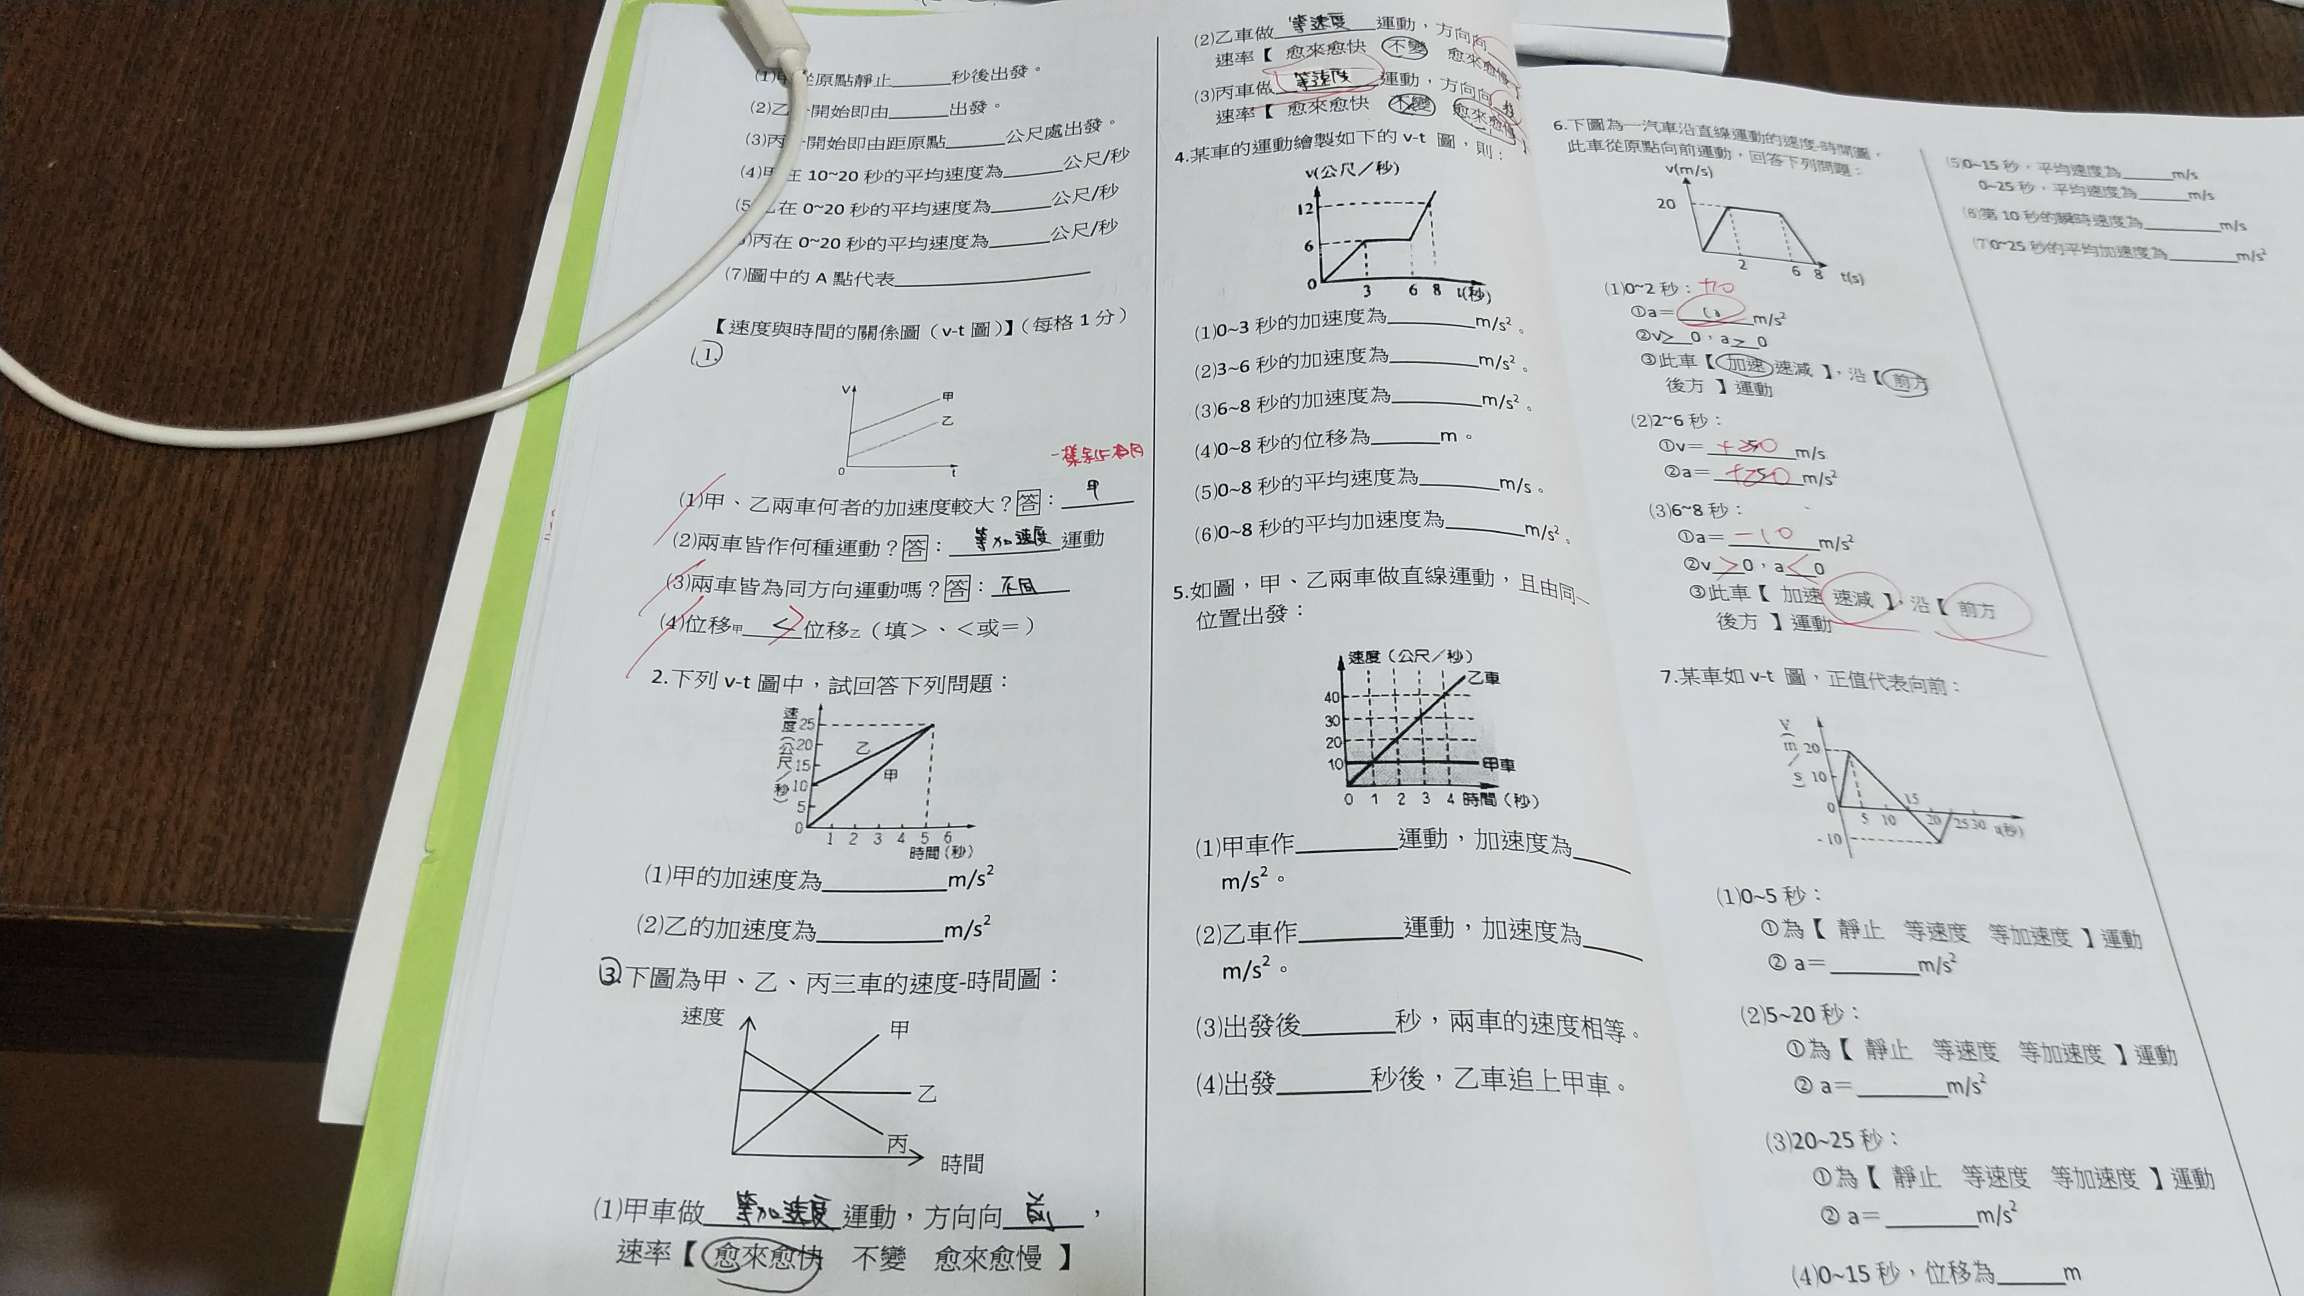 從原點靜止______秒後出發。
(2)乙 開始即由______出發。
(3)丙 開始即由距原點______公尺處出發。
(4)甲在 10~20 秒的平均速度為______公尺/秒
(5)乙在 0~20 秒的平均速度為______公尺/秒
)丙在 0~20 秒的平均速度為______公尺/秒
(7)圖中的 A 點代表____________
【速度與時間的關係圖（v-t 圖）】（每格 1 分）
1.
v
甲
乙
0
t
(1)甲、乙兩車何者的加速度較大？答：甲
(2)兩車皆作何種運動？答：等加速度運動
(3)兩車皆為同方向運動嗎？答：不同
(4)位移甲 < 位移乙（填＞、＜或＝）
2.下列 v-t 圖中，試回答下列問題：
速度(公尺/秒)
25
20
15
10
5
0
乙
甲
1 2 3 4 5 6
時間(秒)
(1)甲的加速度為______m/s²
(2)乙的加速度為______m/s²
3.下圖為甲、乙、丙三車的速度-時間圖：
速度
甲
乙
丙
時間
(1)甲車做等加速度運動，方向向前，
速率【 愈來愈快 不變 愈來愈慢 】
(2)乙車做等速度運動，方向向
速率【 愈來愈快 不變 愈來愈慢
(3)丙車做等速度運動，方向向
速率【 愈來愈快 不變 愈來愈慢 】
4.某車的運動繪製如下的 v-t 圖，則：
v(公尺／秒)
12
6
0
3 6 8 t(秒)
(1)0~3 秒的加速度為______m/s²。
(2)3~6 秒的加速度為______m/s²。
(3)6~8 秒的加速度為______m/s²。
(4)0~8 秒的位移為______m。
(5)0~8 秒的平均速度為______m/s。
(6)0~8 秒的平均加速度為______m/s²。
5.如圖，甲、乙兩車做直線運動，且由同一
位置出發：
速度(公尺／秒)
乙車
40
30
20
10
甲車
0 1 2 3 4 時間(秒)
(1)甲車作______運動，加速度為____
m/s²。
(2)乙車作______運動，加速度為____
m/s²。
(3)出發後______秒，兩車的速度相等。
(4)出發______秒後，乙車追上甲車。
6.下圖為一汽車沿直線運動的速度-時間圖，
此車從原點向前運動，回答下列問題：
v(m/s)
20
2 6 8 t(s)
(1)0~2 秒：+10
①a＝10 m/s²
②v＞0，a＞0
③此車【 加速 速減 】，沿【 前方
後方 】運動
(2)2~6 秒：
①v＝ m/s
②a＝ m/s²
(3)6~8 秒：
①a＝－10 m/s²
②v＞0，a＜0
③此車【 加速 速減 】，沿【 前方
後方 】運動
7.某車如 v-t 圖，正值代表向前：
v(m/s)
20
10
0
-10
5 10 15 20 25 30 t(秒)
(1)0~5 秒：
①為【 靜止 等速度 等加速度 】運動
② a＝______m/s²
(2)5~20 秒：
①為【 靜止 等速度 等加速度 】運動
② a＝______m/s²
(3)20~25 秒：
①為【 靜止 等速度 等加速度 】運動
② a＝______m/s²
(4)0~15 秒，位移為______m
(5)0~15 秒，平均速度為______m/s
0~25 秒，平均速度為______m/s
(6)第 10 秒的瞬時速度為______m/s
(7)0~25 秒的平均加速度為______m/s²